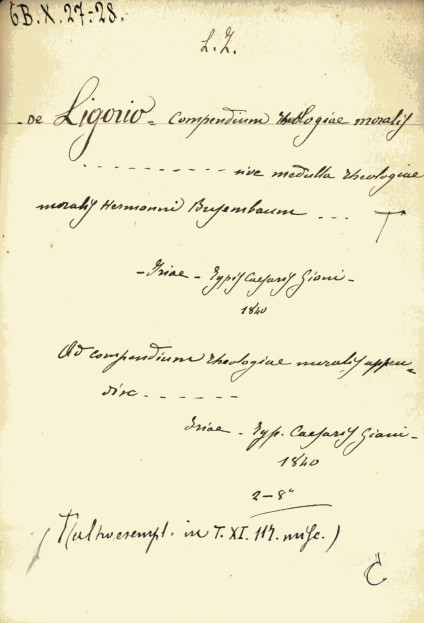 6B.X.27-28.
L.Z.
- De Ligorio - Compendium theologiae moralis
- - - - - - - - - - - sive medulla theologiae
moralis Hermanni Busembaum ... T
- Iriae - Typis Caesaris Giani -
1840
Ad compendium theologiae moralis appen=
dix - - - - - -
Iriae - Typ. Caesaris Giani -
1840
2-8°
(altro esempl. in T. XI. 117. misc.)
C